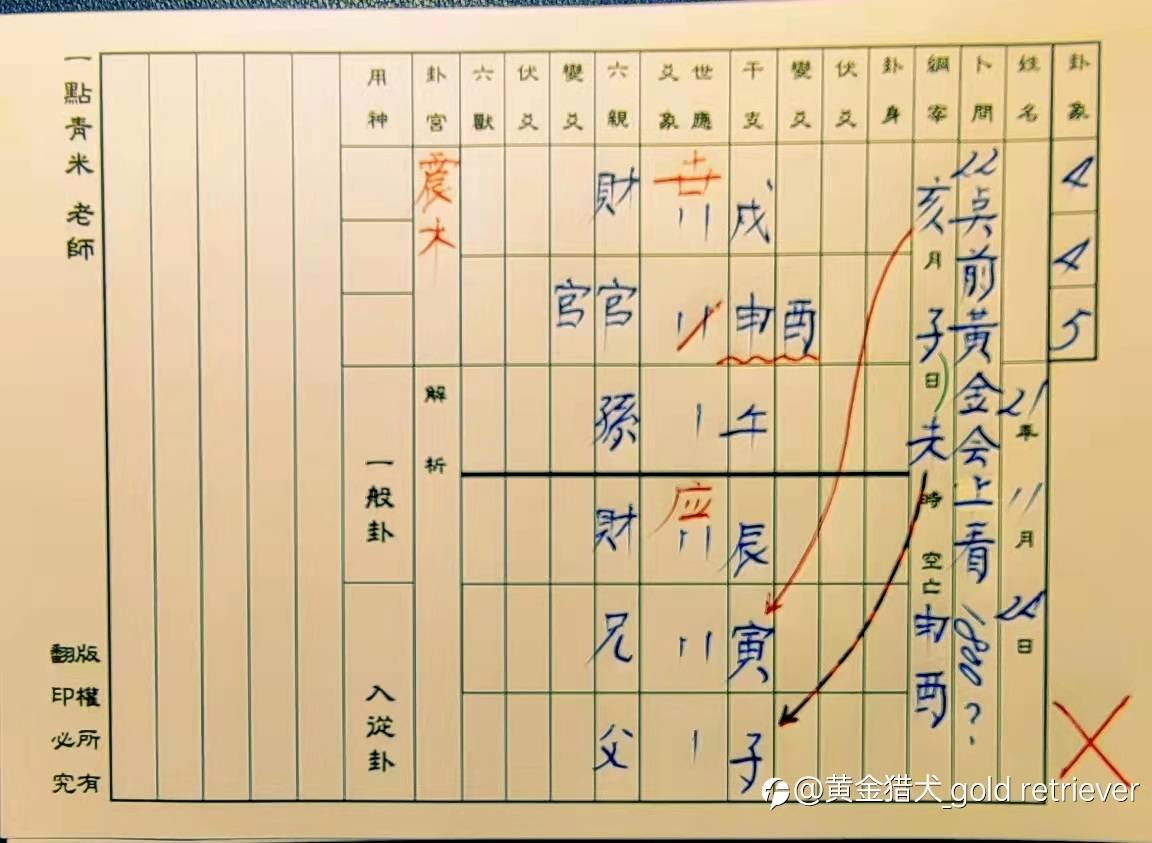 卦象
4
4
5
姓名
21年11月24日
卜問
22点前黄金会上看1800?
綱宰
亥月子日未時空亡申酉
卦身
伏爻
變爻
酉
干支
戌
申
午
辰
寅
子
世應爻象
世
应
六親
財
官
孫
財
兄
父
變爻
官
伏爻
六獸
卦宮
震木
解析
用神
一般卦
入從卦
一點青米老師
版權所有
翻印必究
@黄金猎犬_gold retriever